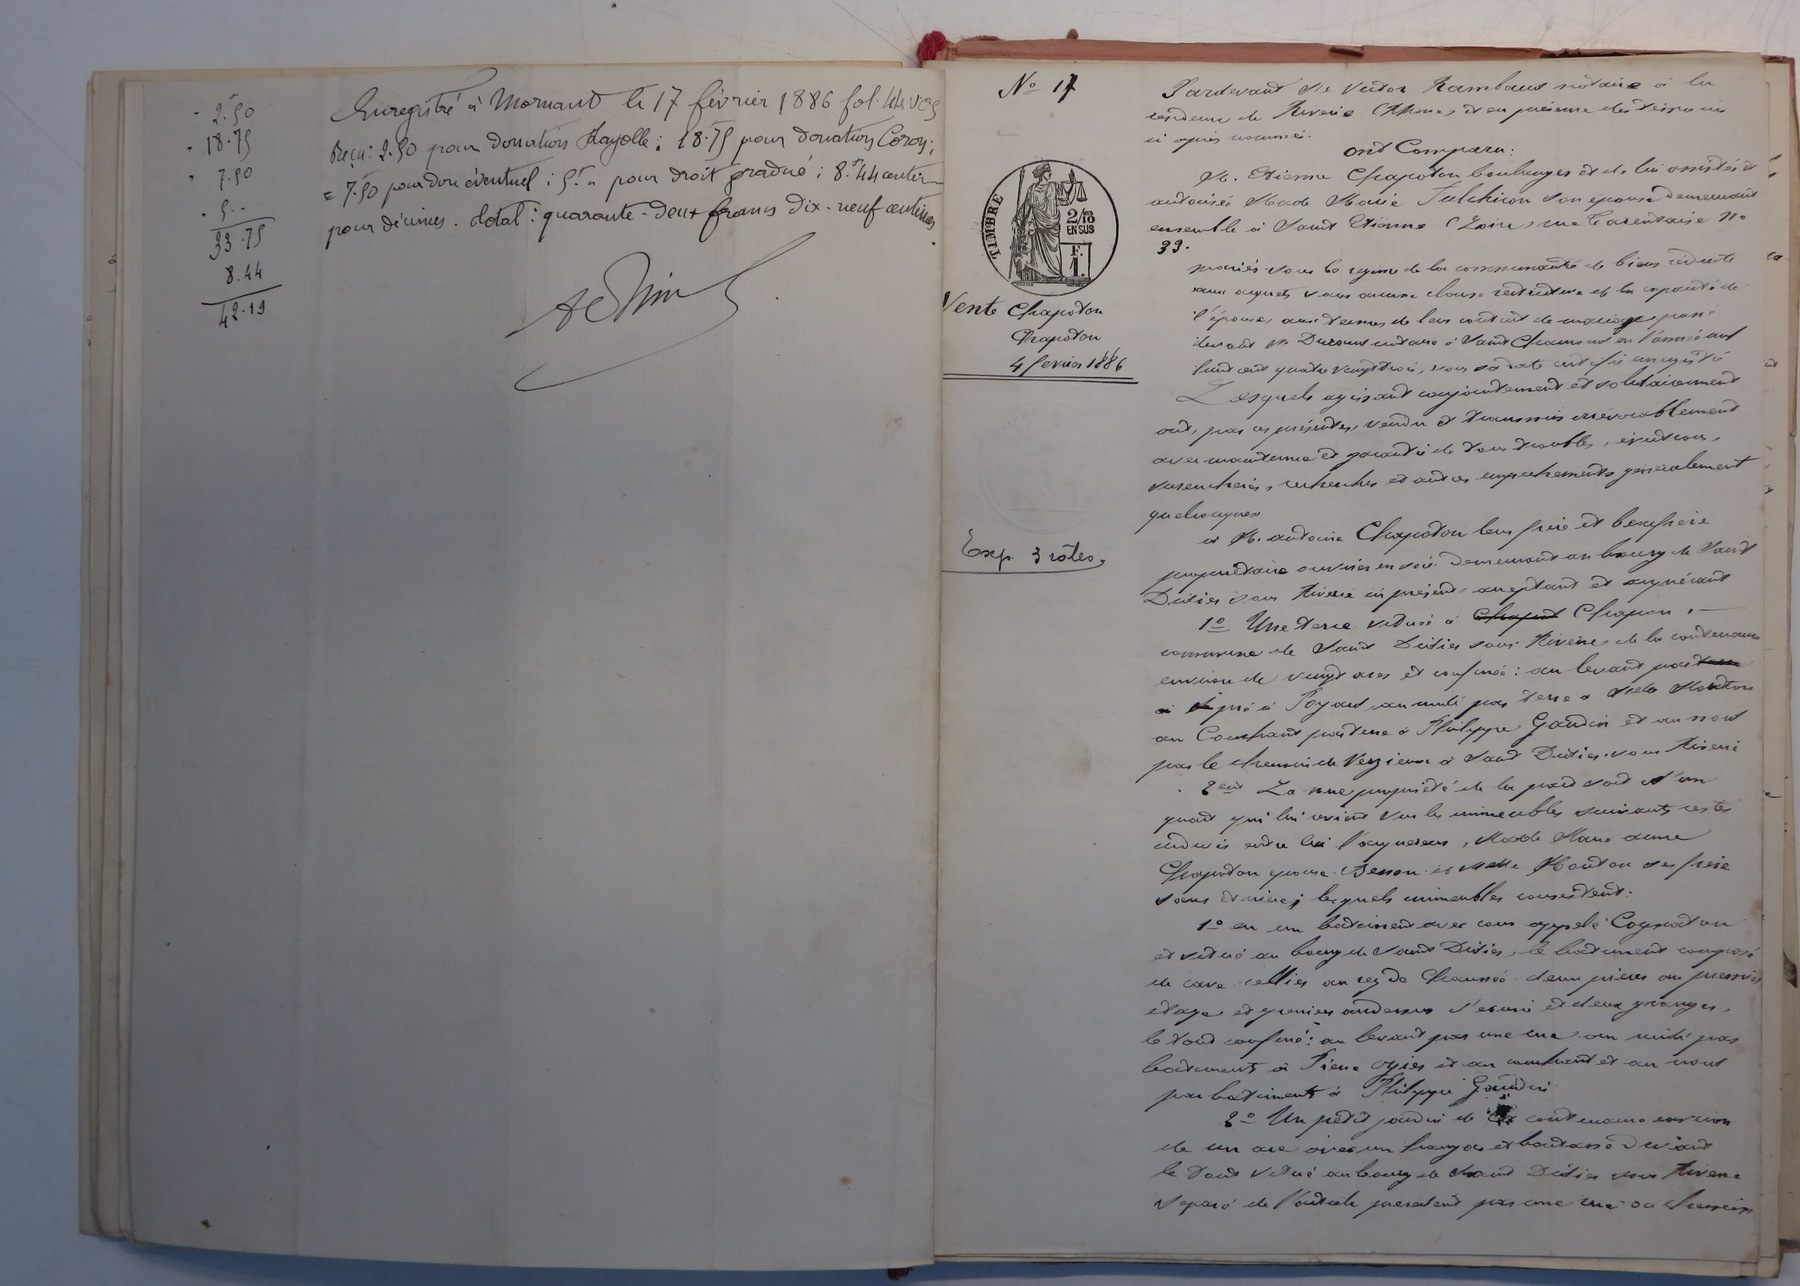 2.50
18.75
7.50
5 --
33.75
8.44
42.19
Enregistré à Mornant le 17 février 1886 fol. 44 v
Reçu: 2.50 pour donation ; 18.75 pour donation ;
= 7.50 pour don éventuel ; 5 " pour droit gradué ; 8.44 centimes
pour décimes. Total : quarante-deux francs dix-neuf centimes.
No 17
TIMBRE
2/10
EN SUS
F.
1.
Vente Chapoton
Chapoton
4 février 1886
Exp. 3 rôles.
Pardevant Me Victor Rambaud notaire à la
résidence de Riverie (Rhône) et en présence des témoins
ci après nommés.
Ont Comparu:
M. Etienne Chapoton boulanger et de lui assistée et
autorisée Made Marie Fulchiron son épouse demeurant
ensemble à Saint Etienne (Loire) rue Tarentaise No
33.
mariés sous le régime de la communauté de biens réduite
aux acquets sans aucune clause restrictive de la capacité de
l'épouse, aux termes de leur contrat de mariage passé
devant Me notaire à Saint Chamond en l'année mil
huit cent quatre vingt trois, sous sa date certifié enregistré
Lesquels agissant conjointement et solidairement
ont, par ces présentes, vendu et transmis irrévocablement
avec maintenue et garantie de tous troubles, éviction,
surenchères, recherches et autres empechements généralement
quelconques
à M. Antoine Chapoton leur frère et beaufrère
propriétaire ouvrier en soie demeurant au bourg de Saint
Didier sous Riverie ici présent, acceptant et acquérant
1o Une terre située à Chapon, —
commune de Saint Didier sous Riverie, de la contenance
environ de vingt ares et confinée : au levant par
pré à Poyard, au midi par terre à Melle Mouton
au Couchant par terre à Philippe Gaudin et au nord
par le chemin de à Saint Didier sous Riverie
2ent La nue propriété de la part soit d'un
quart qui lui revient sur les immeubles suivants restés
indivis entre lui l'acquéreur, Made Marie
Chapoton épouse et Melle Mouton ses frère
soeurs et nièce ; lesquels immeubles consistent:
1o en un batiment avec cour appelé
et situé au bourg de Saint Didier, le batiment composé
de cave cellier au rez de chaussée deux pièces au premier
étage et grenier audessus et deux granges,
le tout confiné : au levant par une rue au midi par
batiments à Pierre et au couchant et au nord
par batiments à Philippe Gaudin
2o Un petit jardin de contenance environ
de un are avec un hangar et boutasse devant
le tout situé au bourg de Saint Didier sous Riverie
séparé de l'article précédent par une rue ou chemin